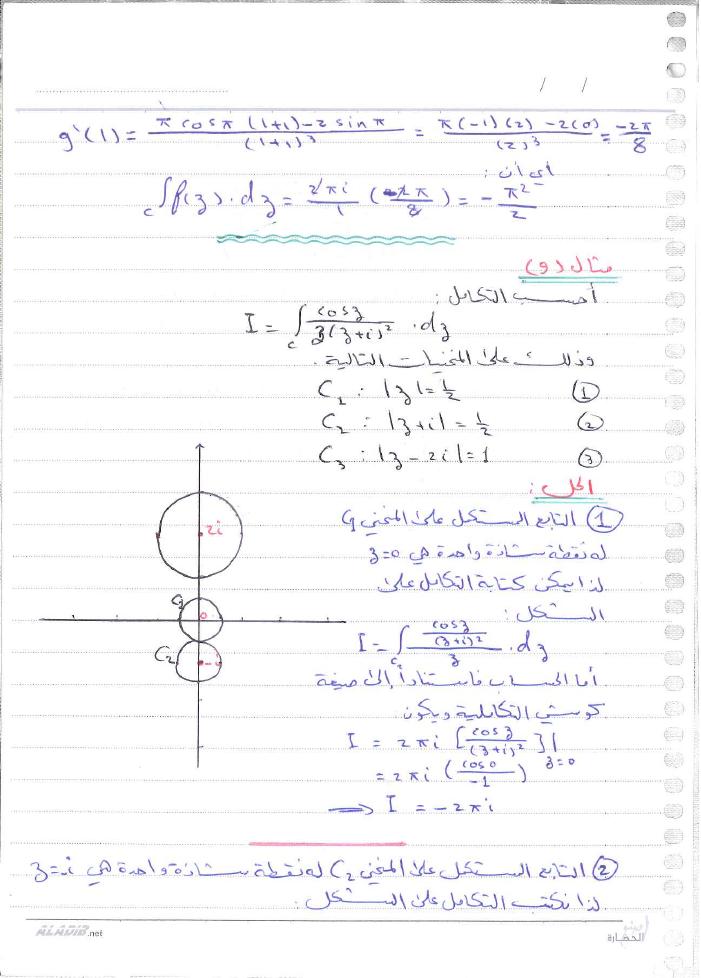 / /
g'(1) = π cosπ (1+1) - 2 sinπ / (1+1)³ = π(-1)(2) - 2(0) / (2)³ = -2π / 8
أي أن :
∫c f(z) . dz = 2πi / 1 ( -2π / 8 ) = - π² / 2
مثال (9)
أحسب التكامل :
I = ∫c cosz / z(z+i)² . dz
وذلك على المنحنيات التالية .
① C₁ : |z| = 1/2
② C₂ : |z+i| = 1/2
③ C₃ : |z - 2i| = 1
الحل :
① التابع المستكمل على المنحني C₁
له نقطة شاذة واحدة هي z=0
لذا يمكن كتابة التكامل على
الشكل :
I = ∫c₁ (cosz / (z+i)²) / z . dz
أما الحساب فاستناداً إلى صيغة
كوشي التكاملية ويكون
I = 2πi [cosz / (z+i)²] | z=0
= 2πi (cos0 / -1)
⟹ I = -2πi
2i
o
C₂
-i
② التابع المستكمل على المنحني C₂ له نقطة شاذة واحدة هي z=-i
لذا نكتب التكامل على الشكل :
ALADIB.net
الحضارة